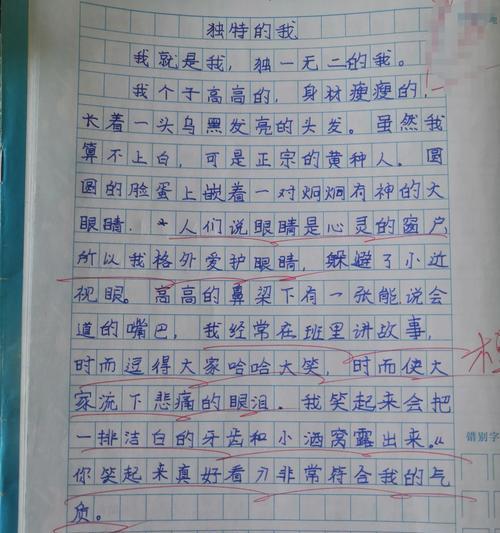 独特的我
我就是我，独一无二的我。
我个子高高的，身材瘦瘦的，
长着一头乌黑发亮的头发。虽然我
算不上白，可是正宗的黄种人。圆
圆的脸蛋上嵌着一对炯炯有神的大
眼睛．人们说眼睛是心灵的窗户，
所以我格外爱护眼睛，躲避了小近
视眼。高高的鼻梁下有一张能说会
道的嘴巴，我经常在班里讲故事，
时而逗得大家哈哈大笑，时而使大
家流下悲痛的眼泪．我笑起来会把
一排洁白的牙齿和小酒窝露出来。“
你笑起来真好看”非常符合我的气
质。
错别字